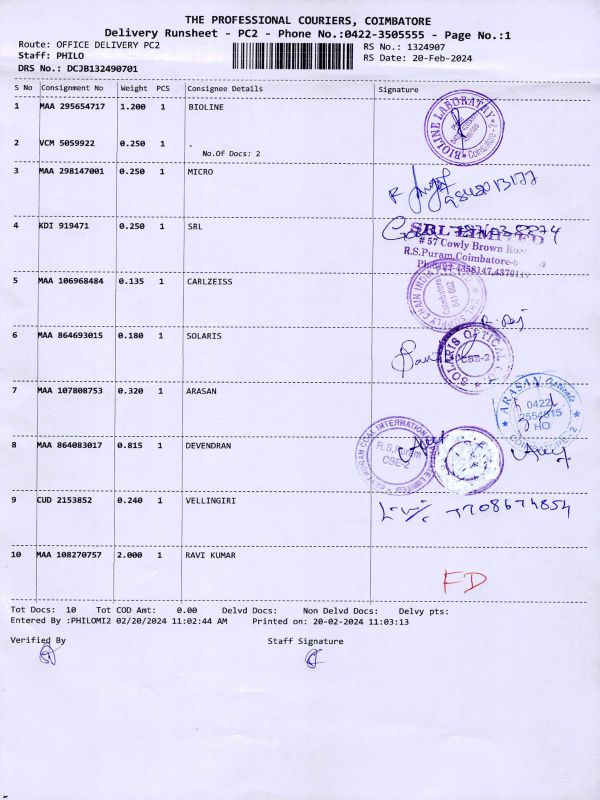 THE PROFESSIONAL COURIERS, COIMBATORE
Delivery Runsheet - PC2 - Phone No.:0422-3505555 - Page No.:1
Route: OFFICE DELIVERY PC2
RS No.: 1324907
Staff: PHILO
RS Date: 20-Feb-2024
DRS No.: DCJB132490701
S No Consignment No Weight PCS Consignee Details Signature
1 MAA 295654717 1.200 1 BIOLINE
BIOLINE LABORATORY
Coimbatore-2
2 VCM 5059922 0.250 1 .
No.Of Docs: 2
3 MAA 298147001 0.250 1 MICRO
4 KDI 919471 0.250 1 SRL
SRL LIMITED
# 57 Cowly Brown Road
R.S.Puram, Coimbatore-
5 MAA 106968484 0.135 1 CARLZEISS
Coimbatore
641 002
6 MAA 864693015 0.180 1 SOLARIS
SOLARIS OPTICAL
CBE-2
7 MAA 107808753 0.320 1 ARASAN
ARASAN Opticals
0422
2554815
HO
COIMBATORE-2
8 MAA 864083017 0.815 1 DEVENDRAN
DEVENDRAN COAL INTERNATIONAL PRIVATE LIMITED
R.S.Puram
CBE-2
9 CUD 2153852 0.240 1 VELLINGIRI
7708674854
10 MAA 108270757 2.000 1 RAVI KUMAR
FD
Tot Docs: 10 Tot COD Amt: 0.00 Delvd Docs: Non Delvd Docs: Delvy pts:
Entered By :PHILOMI2 02/20/2024 11:02:44 AM Printed on: 20-02-2024 11:03:13
Verified By Staff Signature